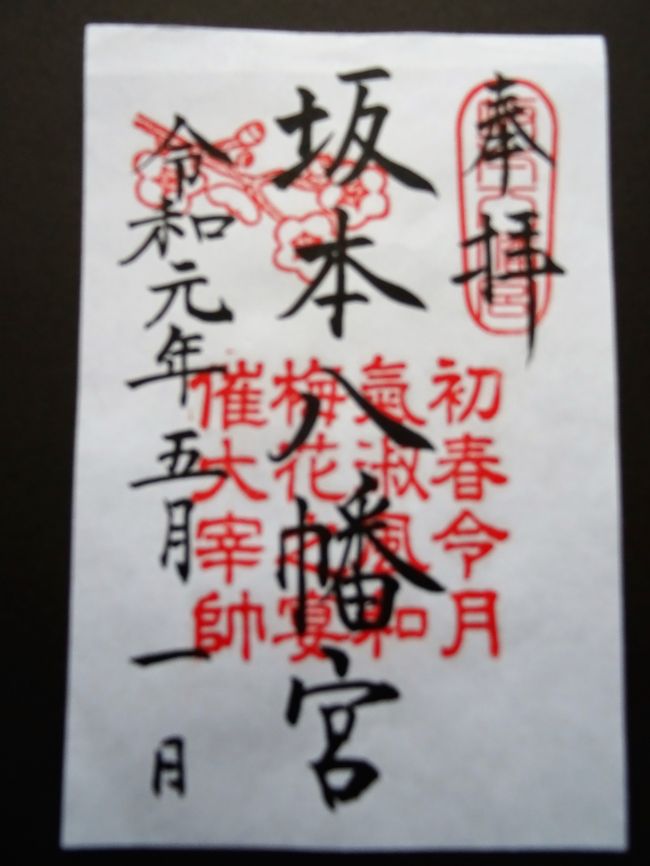 奉拝
坂本八幡宮
令和元年五月一日
初春令月
氣淑風和
梅花之宴
催大宰帥